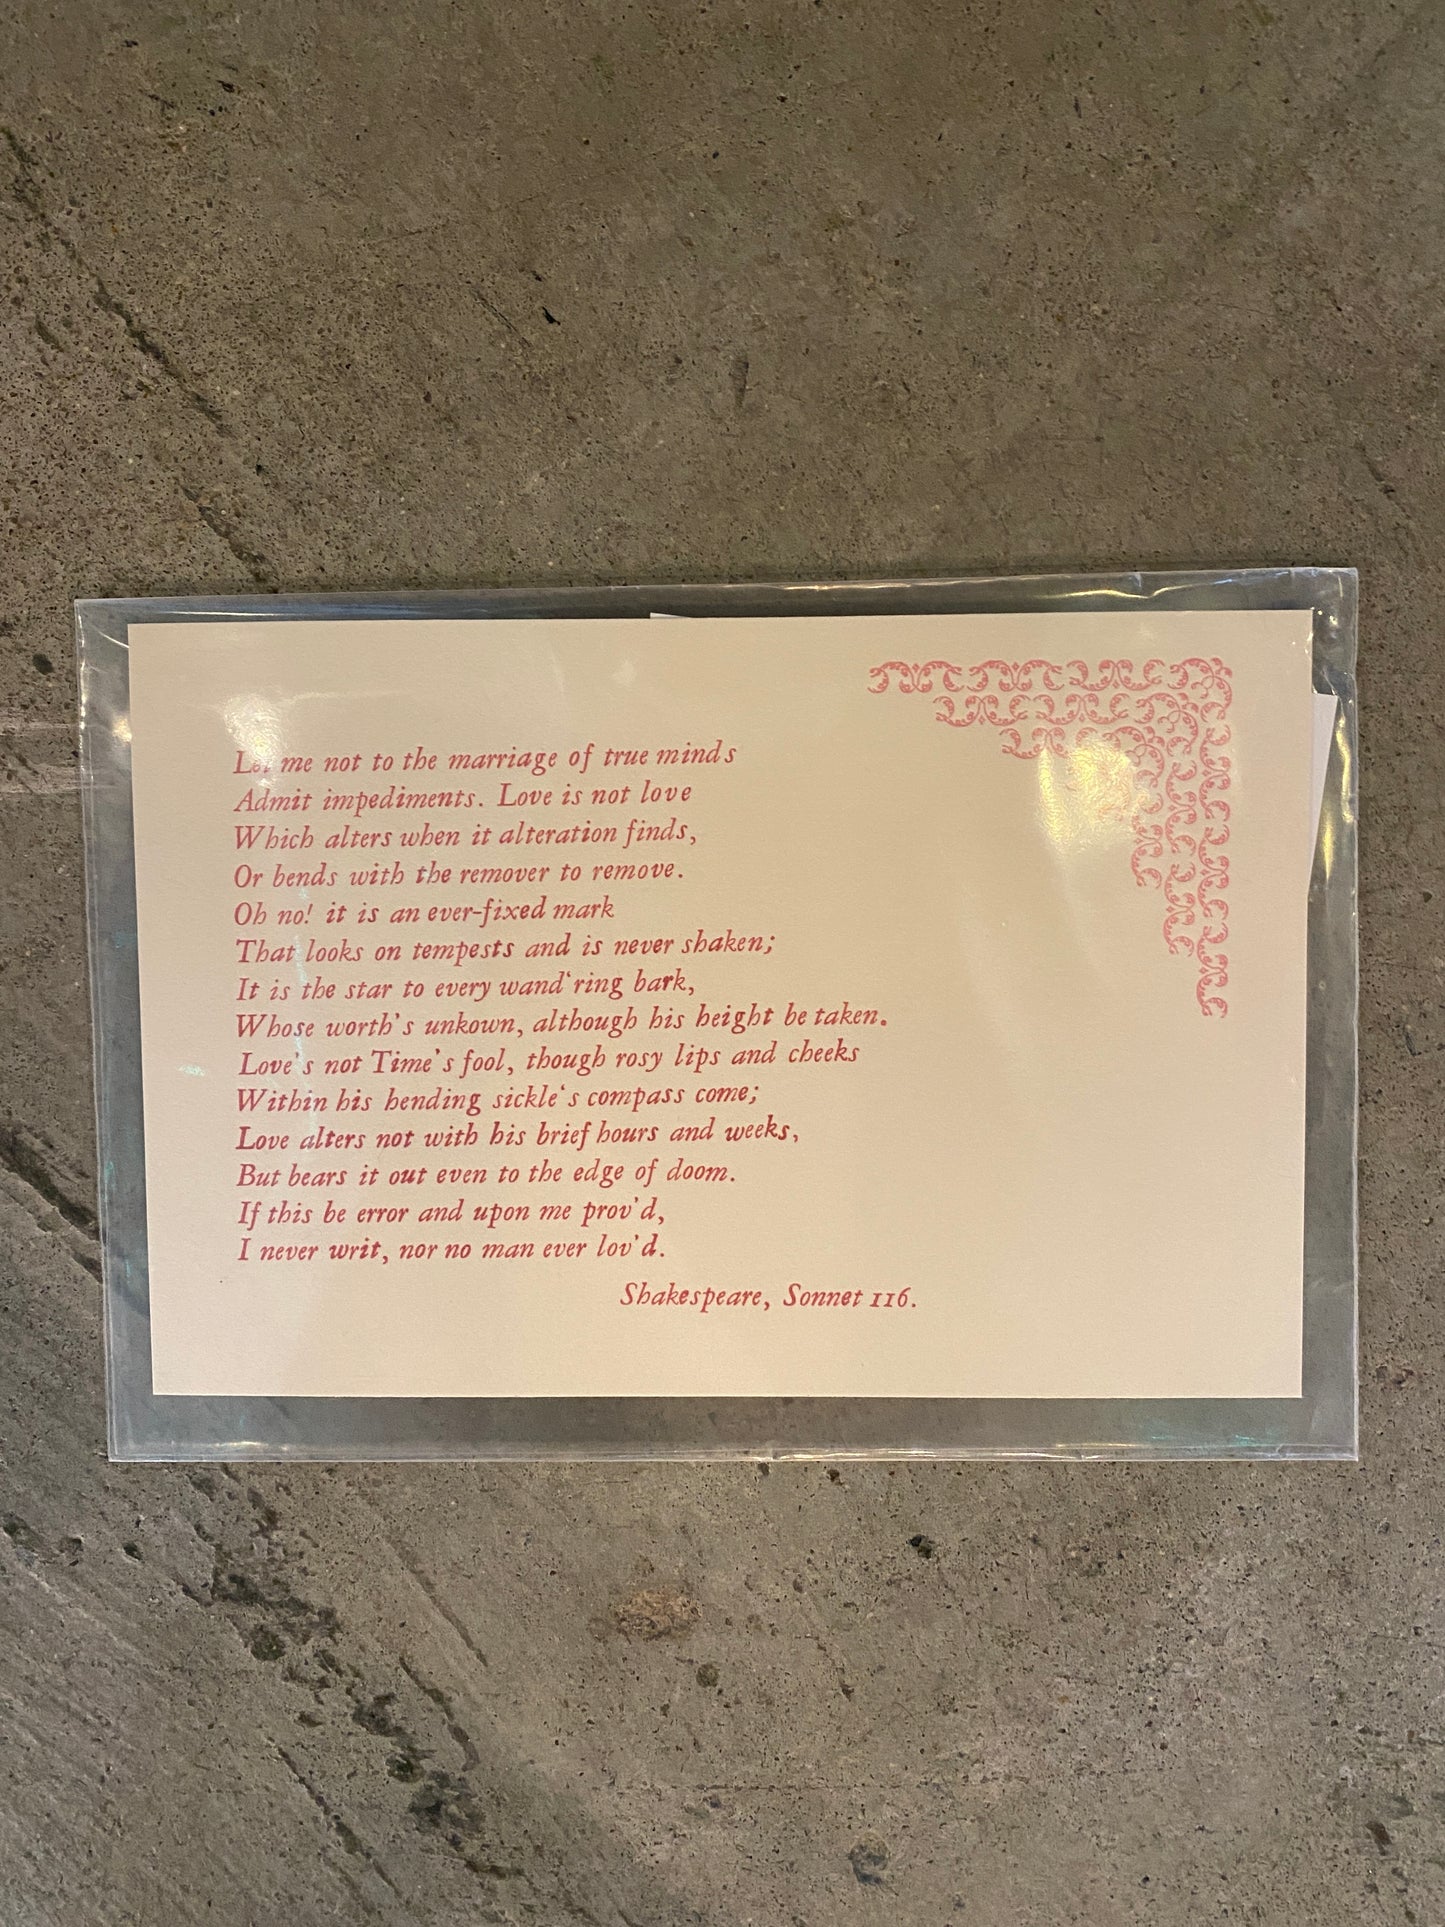 Let me not to the marriage of true minds
Admit impediments. Love is not love
Which alters when it alteration finds,
Or bends with the remover to remove.
Oh no! it is an ever-fixed mark
That looks on tempests and is never shaken;
It is the star to every wand‘ring bark,
Whose worth’s unkown, although his height be taken.
Love’s not Time’s fool, though rosy lips and cheeks
Within his bending sickle‘s compass come;
Love alters not with his brief hours and weeks,
But bears it out even to the edge of doom.
If this be error and upon me prov’d,
I never writ, nor no man ever lov’d.
Shakespeare, Sonnet 116.